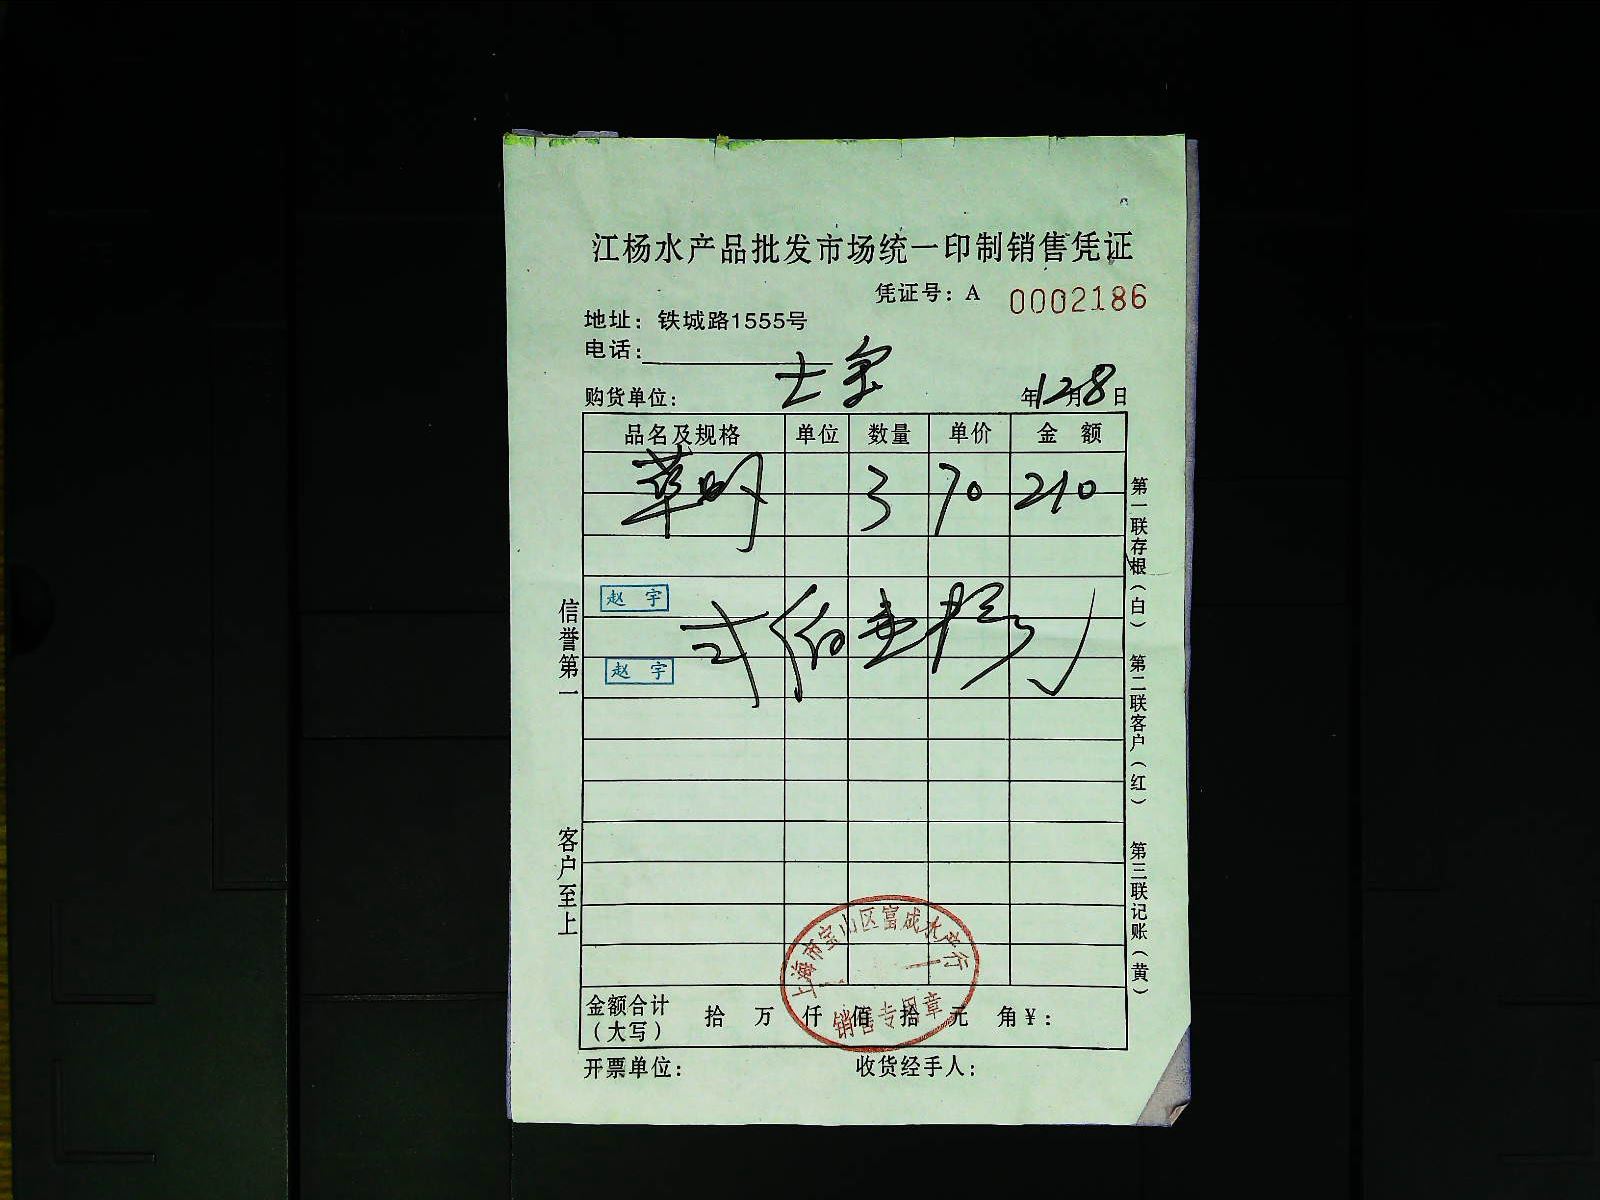 江杨水产品批发市场统一印制销售凭证
凭证号：A 0002186
地址：铁城路1555号
电话：
购货单位： 年12月8日
品名及规格 单位 数量 单价 金额
草 3 70 210
赵宇
赵宇
信誉第一
客户至上
第一联存根（白）
第二联客户（红）
第三联记账（黄）
上海市宝山区富成水产行
销售专用章
金额合计（大写） 拾 万 仟 佰 拾 元 角 ¥：
开票单位： 收货经手人：